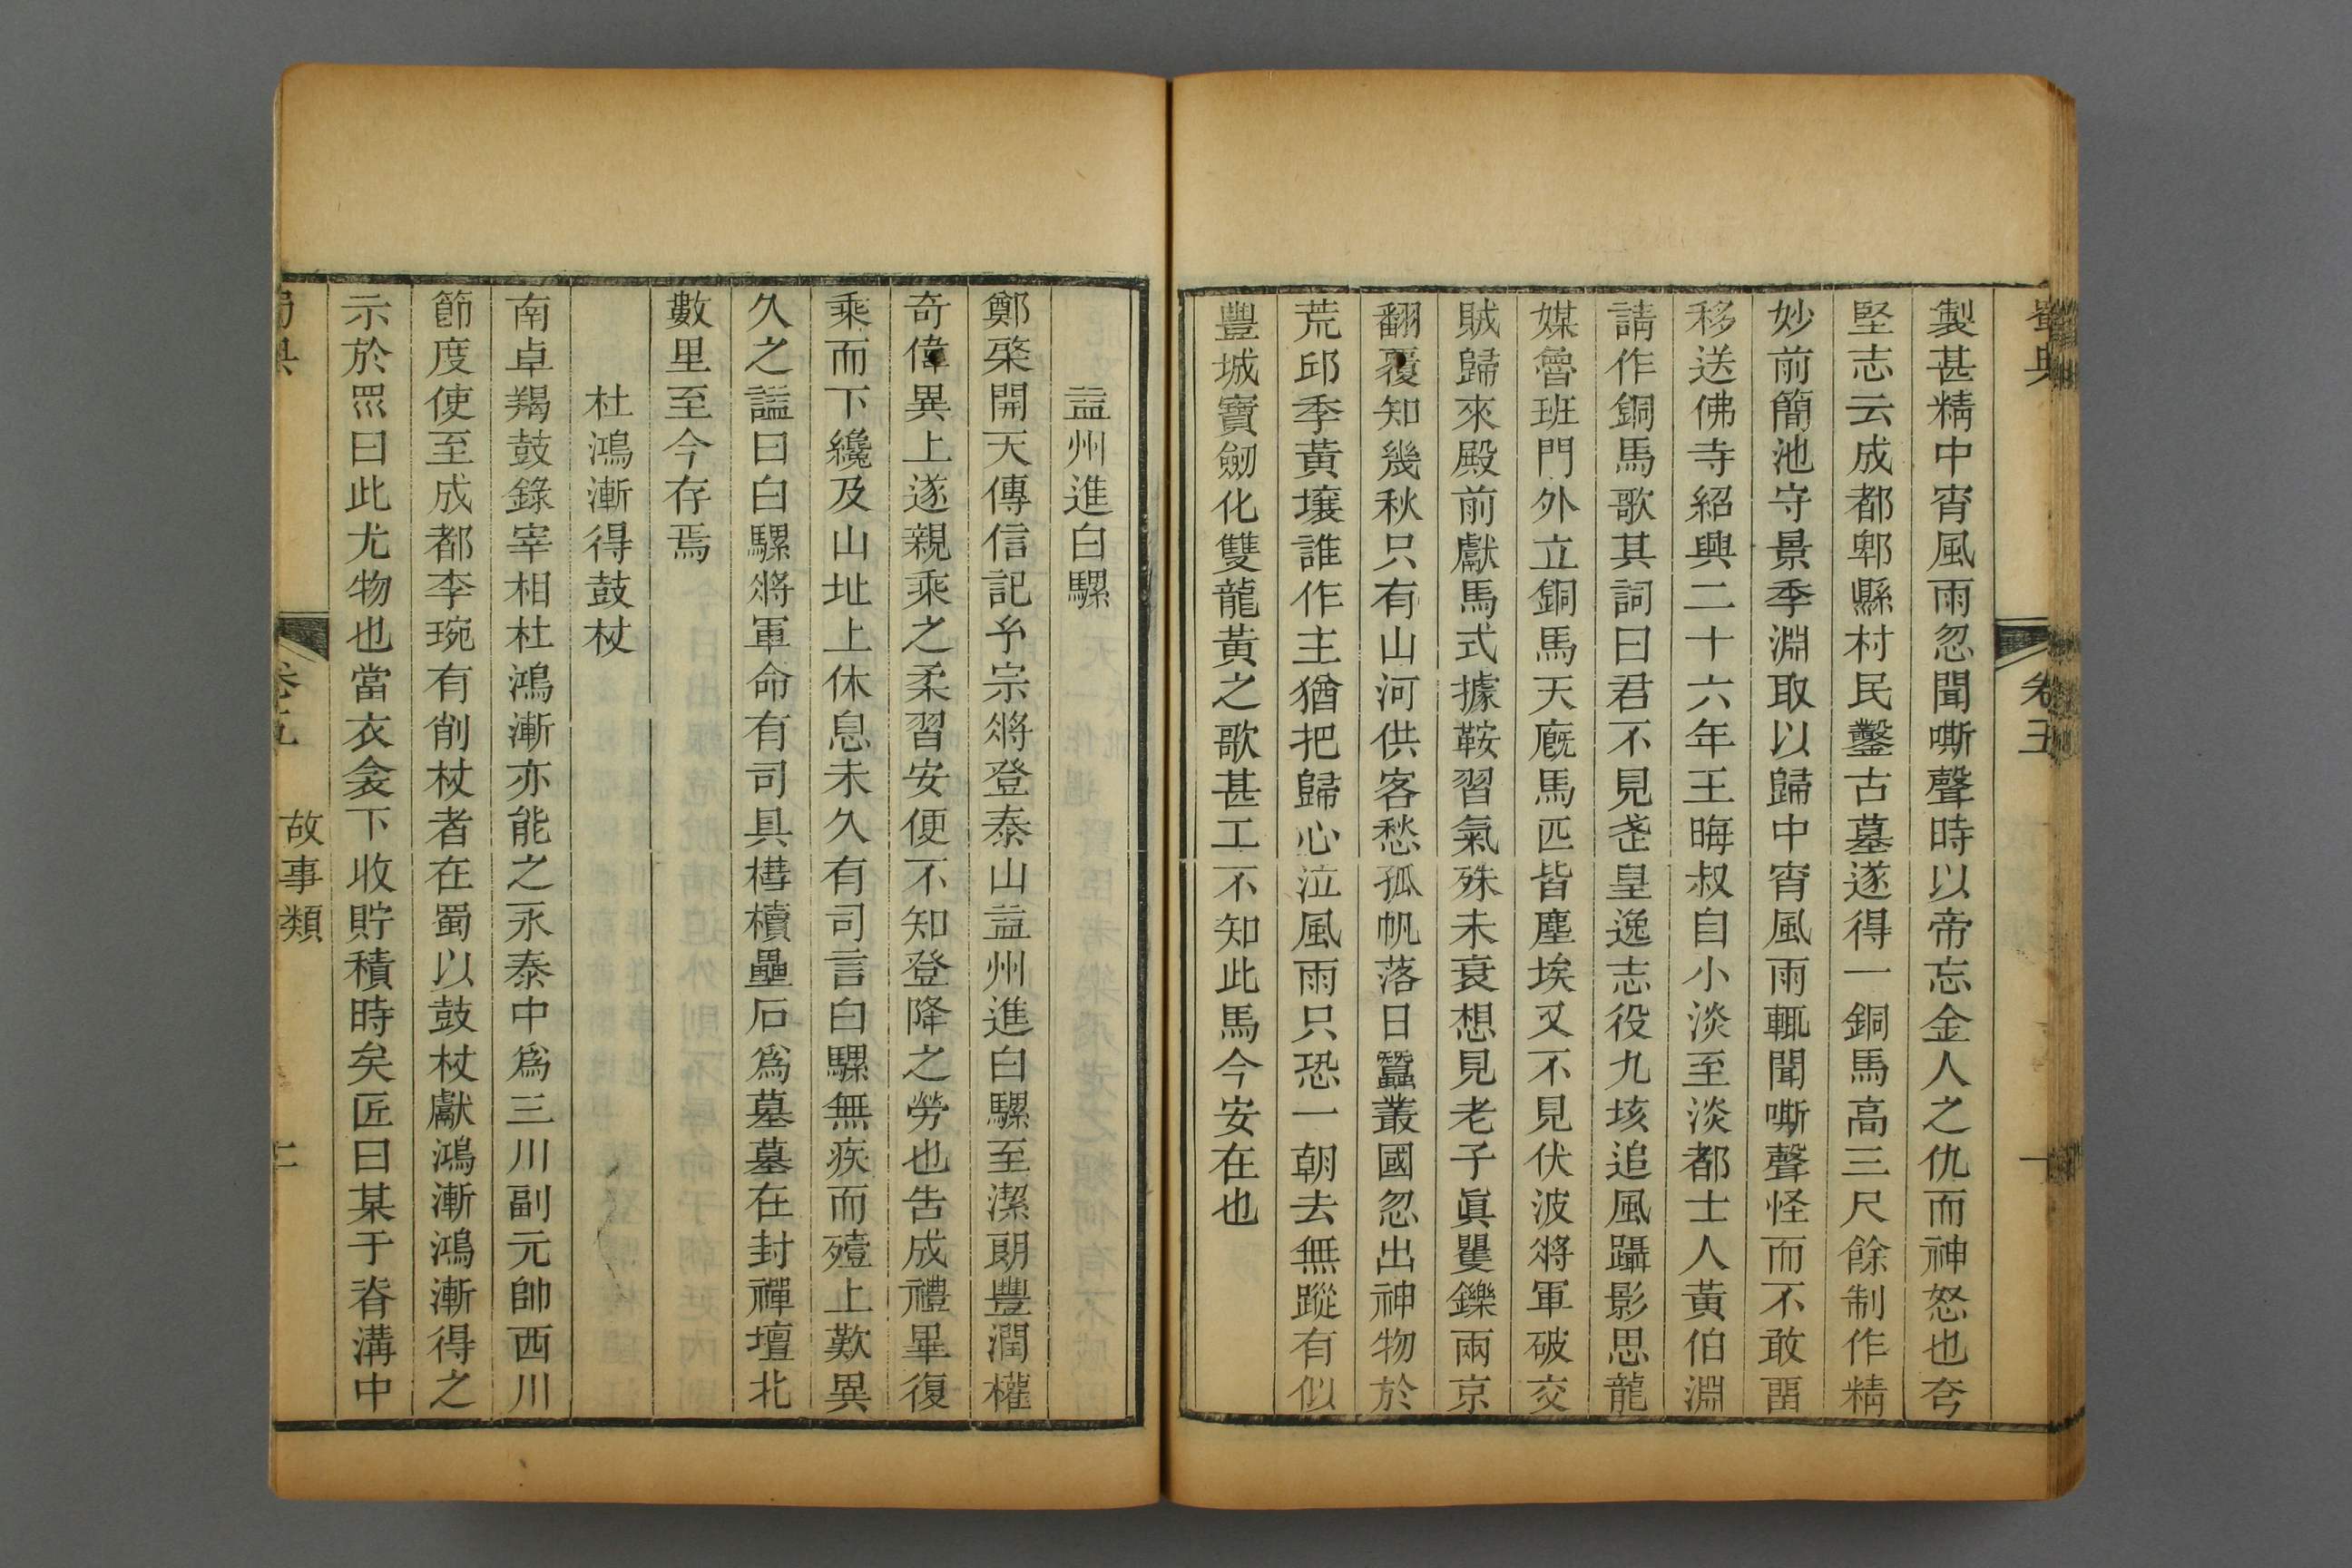 蜀典
卷五
製甚精中宵風雨忽聞嘶聲時以帝忘金人之仇而神怒也夸
堅志云成都郫縣村民鑿古墓遂得一銅馬高三尺餘制作精
妙前簡池守景季淵取以歸中宵風雨輒聞嘶聲怪而不敢畱
移送佛寺紹興二十六年王晦叔自小淡至淡都士人黃伯淵
請作銅馬歌其詞曰君不見𡔈皇逸志役九垓追風躡影思龍
媒魯班門外立銅馬天廐馬匹皆塵埃又不見伏波將軍破交
賊歸來殿前獻馬式據鞍習氣殊未衰想見老子眞矍鑠兩京
翻覆知幾秋只有山河供客愁孤帆落日蠶叢國忽出神物於
荒邱季黃壤誰作主猶把歸心泣風雨只恐一朝去無蹤有似
豐城寶劒化雙龍黃之歌甚工不知此馬今安在也
益州進白騾
鄭棨開天傳信記𤣥宗將登泰山益州進白騾至潔朗豐潤權
奇偉異上遂親乘之柔習安便不知登降之勞也告成禮畢復
乘而下纔及山址上休息未久有司言白騾無疾而殪上歎異
久之謚曰白騾將軍命有司具槥櫝壘石爲墓墓在封禪壇北
數里至今存焉
杜鴻漸得鼓杖
南卓羯鼓錄宰相杜鴻漸亦能之永泰中爲三川副元帥西川
節度使至成都李琬有削杖者在蜀以鼓杖獻鴻漸鴻漸得之
示於眾曰此尤物也當衣衾下收貯積時矣匠曰某于脊溝中
卷五
故事類